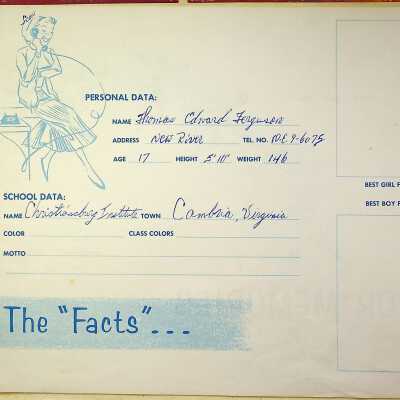 PERSONAL DATA:
NAME Thomas Edward Ferguson
ADDRESS New River TEL. NO. O.E.9-6075
AGE 17 HEIGHT 5'10" WEIGHT 146
SCHOOL DATA:
NAME Christiansburg Institute TOWN Cambria, Virginia
COLOR CLASS COLORS
MOTTO
BEST GIRL F
BEST BOY F
The "Facts"...